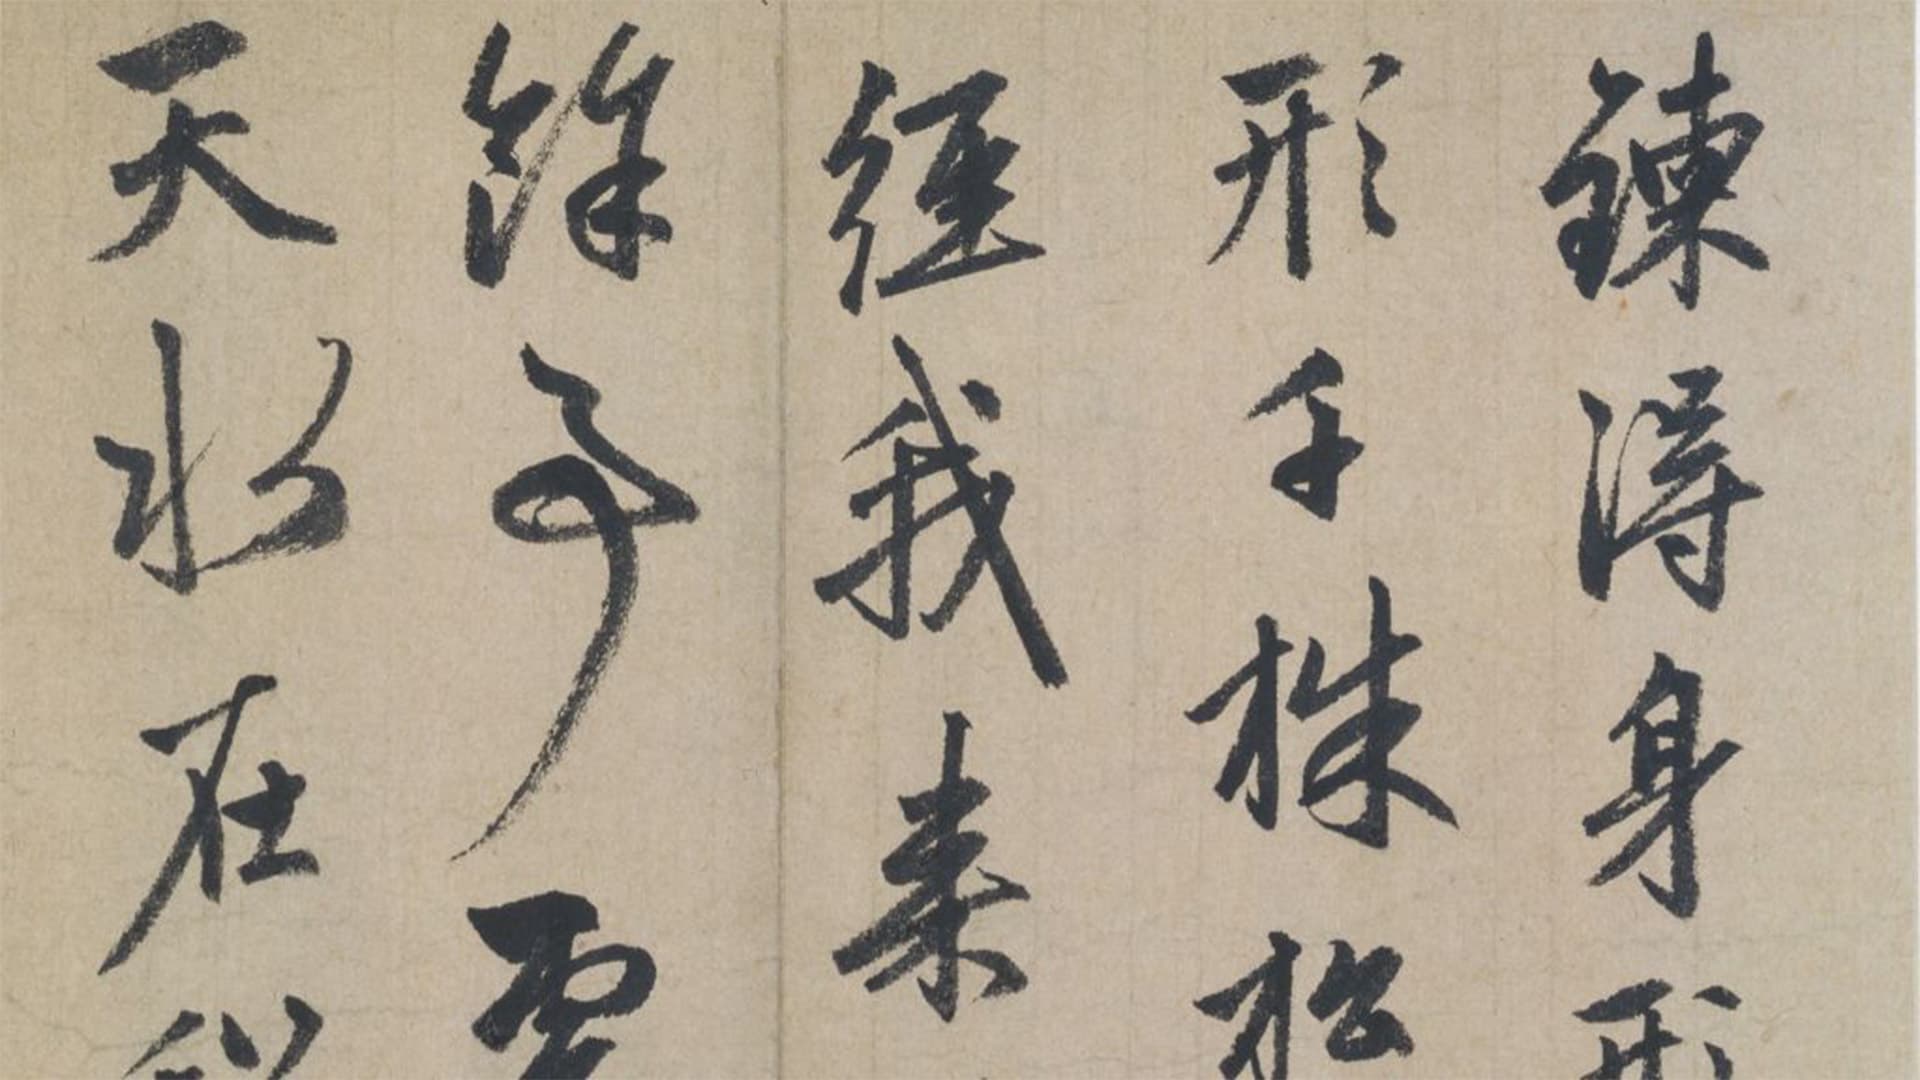 鍊得身形
形千株松
經我来
餘事雲
天水在